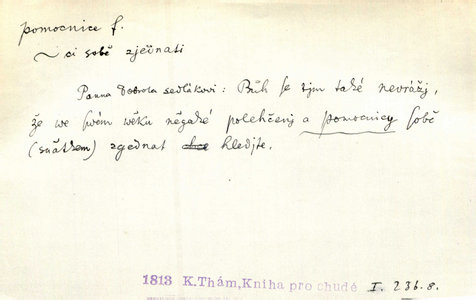 pomocnice f.
~ ci sobě zjednati
Panna Dobrota sedlákovi: Bůh se tjm také neuráżj,
že we swém wěku něgaké polehčenj a pomocnicy sobě
(sňatkem) zgednat hledjte.
1813 K.Thám, Kniha pro chudé I. 236.8.